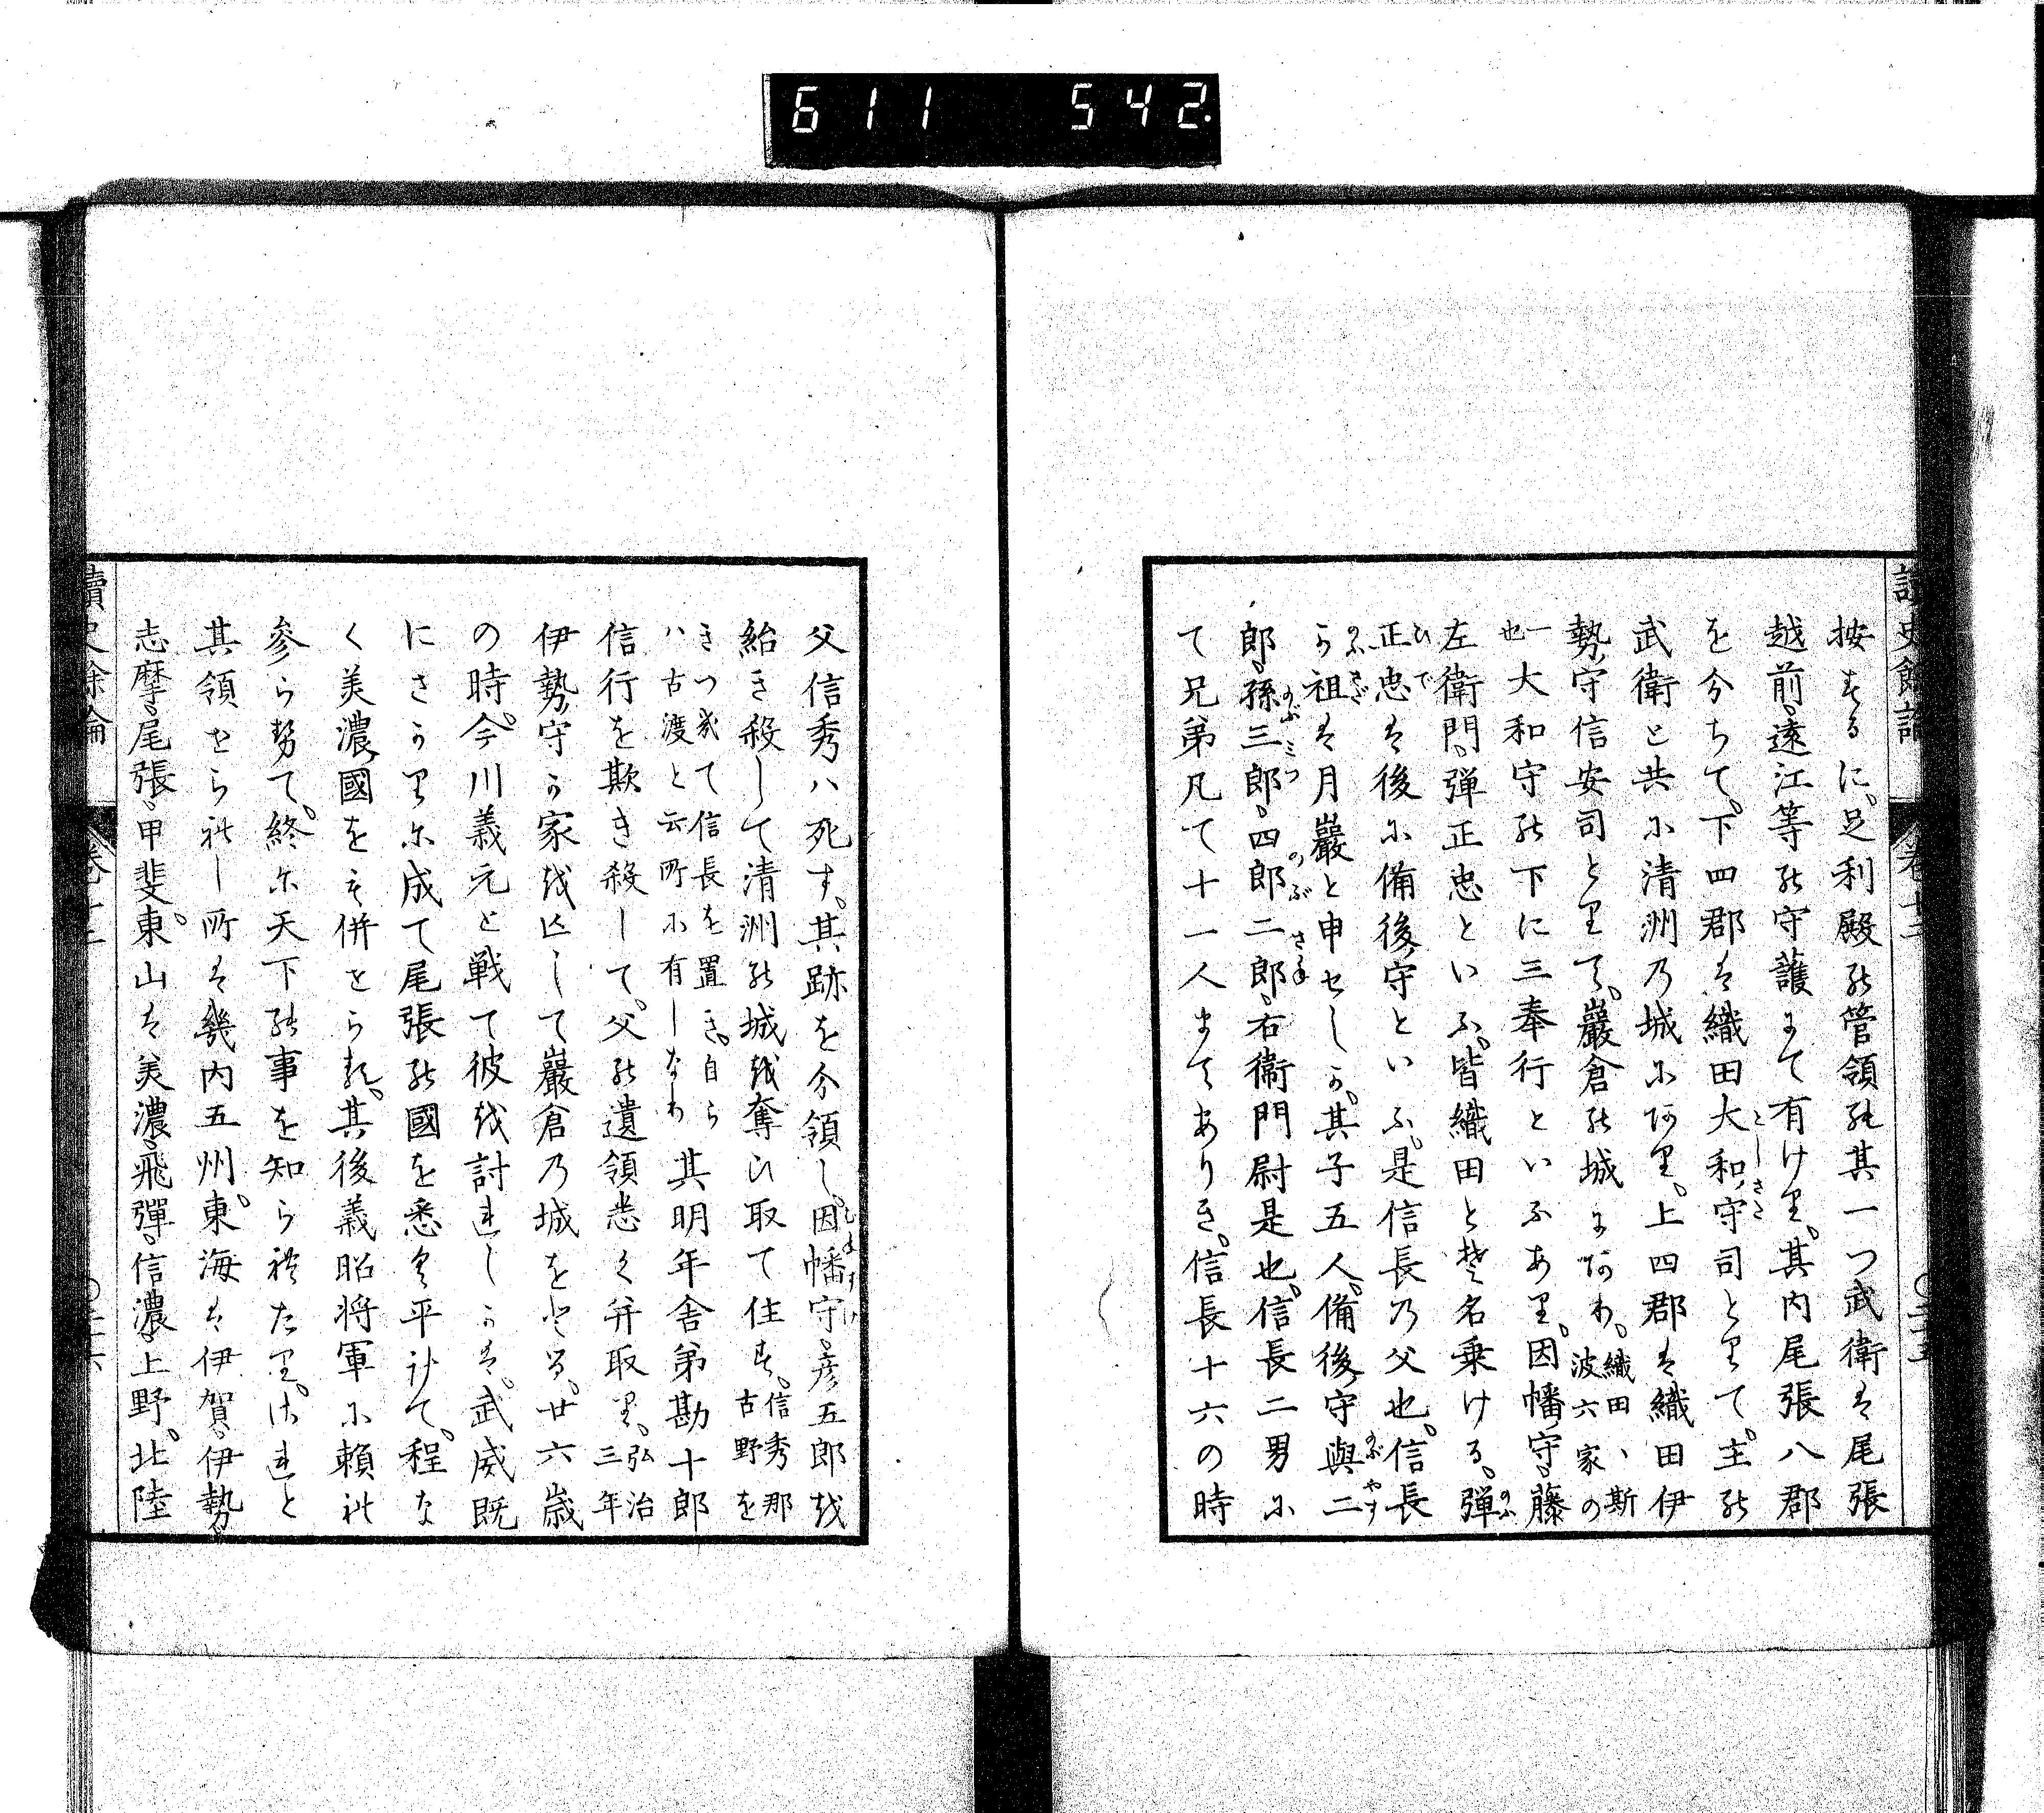 611 542.
讀史餘論 卷十二
按するに。足利殿の管領の其一つ武衛は尾張
越前。遠江等の守護にて有けり。其内尾張八郡
を分ちて。下四郡は織田大和守司とりて。主の
武衛と共に清洲乃城にあり。上四郡は織田伊
勢守信安司とりて。巖倉の城にあり。織田ハ斯
波六家の
一也大和守の下に三奉行といふあり。因幡守。藤
左衛門。弾正忠といふ。皆織田とぞ名乗ける。弾
正忠は後に備後守といふ。是信長乃父也。信長
か祖は月巖と申せしか。其子五人。備後守與二
郎。孫三郎。四郎二郎。右衞門尉是也。信長二男に
て兄弟凡て十一人まてありき。信長十六の時
父信秀ハ死す。其跡を分領し。因幡守。彦五郎を
紿き殺して清洲の城を奪ひ取て住す。信秀那
古野を
きつきて信長を置き。自ら
ハ古渡と云所に有しなり
其明年舎弟勘十郎
信行を欺き殺して。父の遺領悉く并取り。弘治
三年
伊勢守か家を亡して巖倉乃城をとる。廿六歳
の時。今川義元と戦て彼を討れしかは。武威既
にさかりに成て尾張の國を悉く平けて。程な
く美濃國をも併とらる。其後義昭将軍に頼れ
参らせて。終に天下の事を知られたり。されと
其領せられし所は畿内五州。東海は伊賀。伊勢
志摩。尾張。甲斐。東山は美濃。飛彈。信濃。上野。北陸
讀史餘論 卷十二